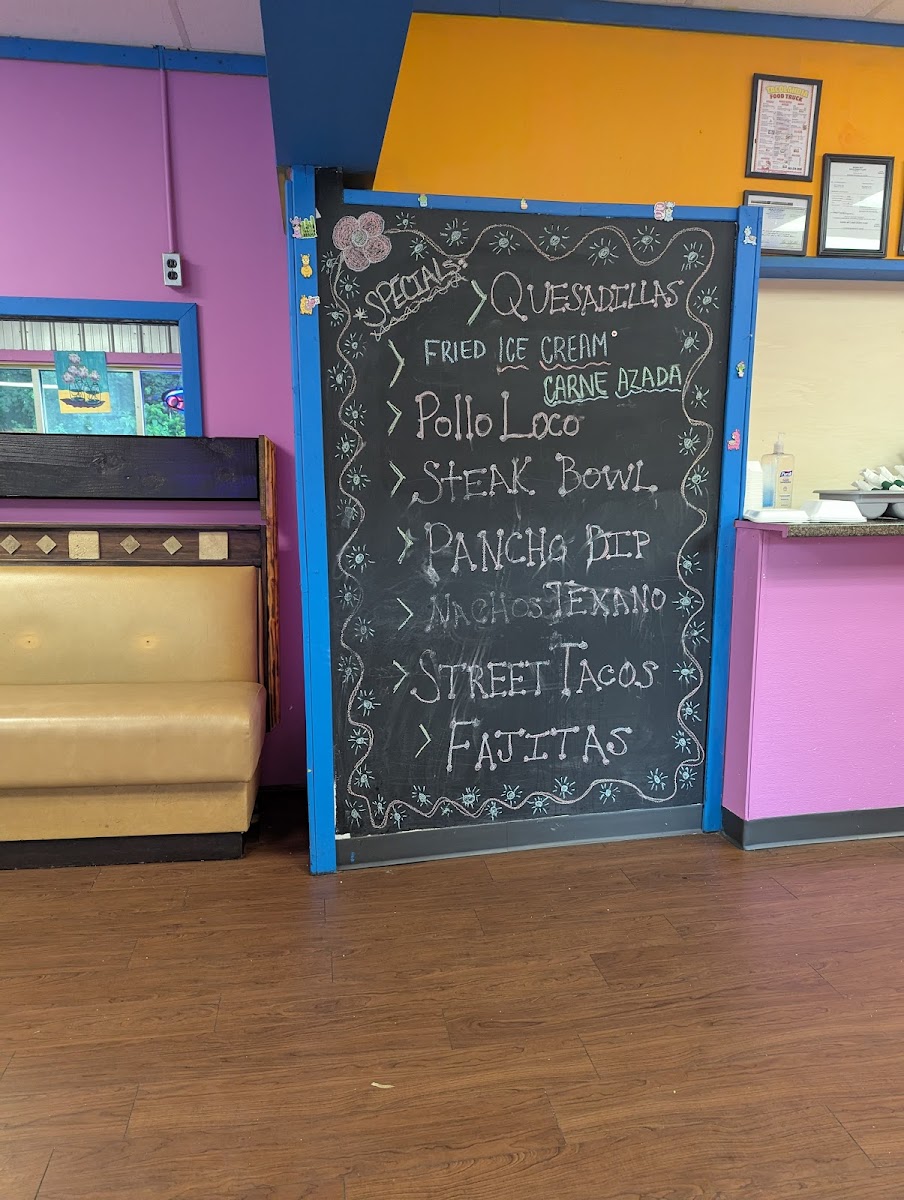 *SPECIALS*
> QUESADILLAS
> FRIED ICE CREAM
CARNE AZADA
> Pollo Loco
> STEAK BOWL
> PANCHO DIP
> NACHOS TEXANO
> STREET TACOS
> FAJITAS
FOOD TRUCK